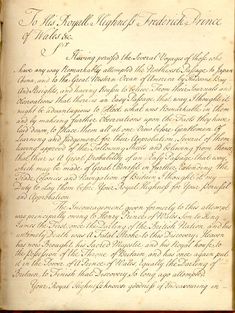 To His Royall Highness Frederick Prince
of Wales &c.
Sir
Having perused the Several Voyages of those who
have any way Remarkably attempted the Northwest Passage to Japan
China, and to the Great Western Ocean of America by Hudsons Bay
and Streights, and having Reason to believe From their Journals and
Observations that there is an Easy Passage that way, I thought it
might be Advantagious to Collect what is Remarkable in them
and by making further Observations upon the Facts they have
laid down, to Place them all at one View before Gentlemen of
Learning and Judgement for their Approbation. Several of them
having approved of the Following Sheets and believing from thence
that there is a Great Probability of an Easy Passage that way,
which may be made of Great Benefit in further Extending the
Trade, Glory and Navigation of Britain I thought it my
Duty to lay them before Your Royal Highness for Your Perusal
and Approbation.
The Encouragement given formerly to this attempt
was principally owing to Henry Prince of Wales Son to King
James the First, once the Darling of the British Nation, and his
untimely Death was a Fatal Stroke to this Discovery. Heaven
has now Brought his Sacred Majestie and his Royal house to
the Possession of the Throne of Britain, and has once again put
it in the Power of a Prince of Wales, Equally the Darling of
Britain to Finish that Discovery so long attempted.
Your Royal Highness known goodness of Encouraging